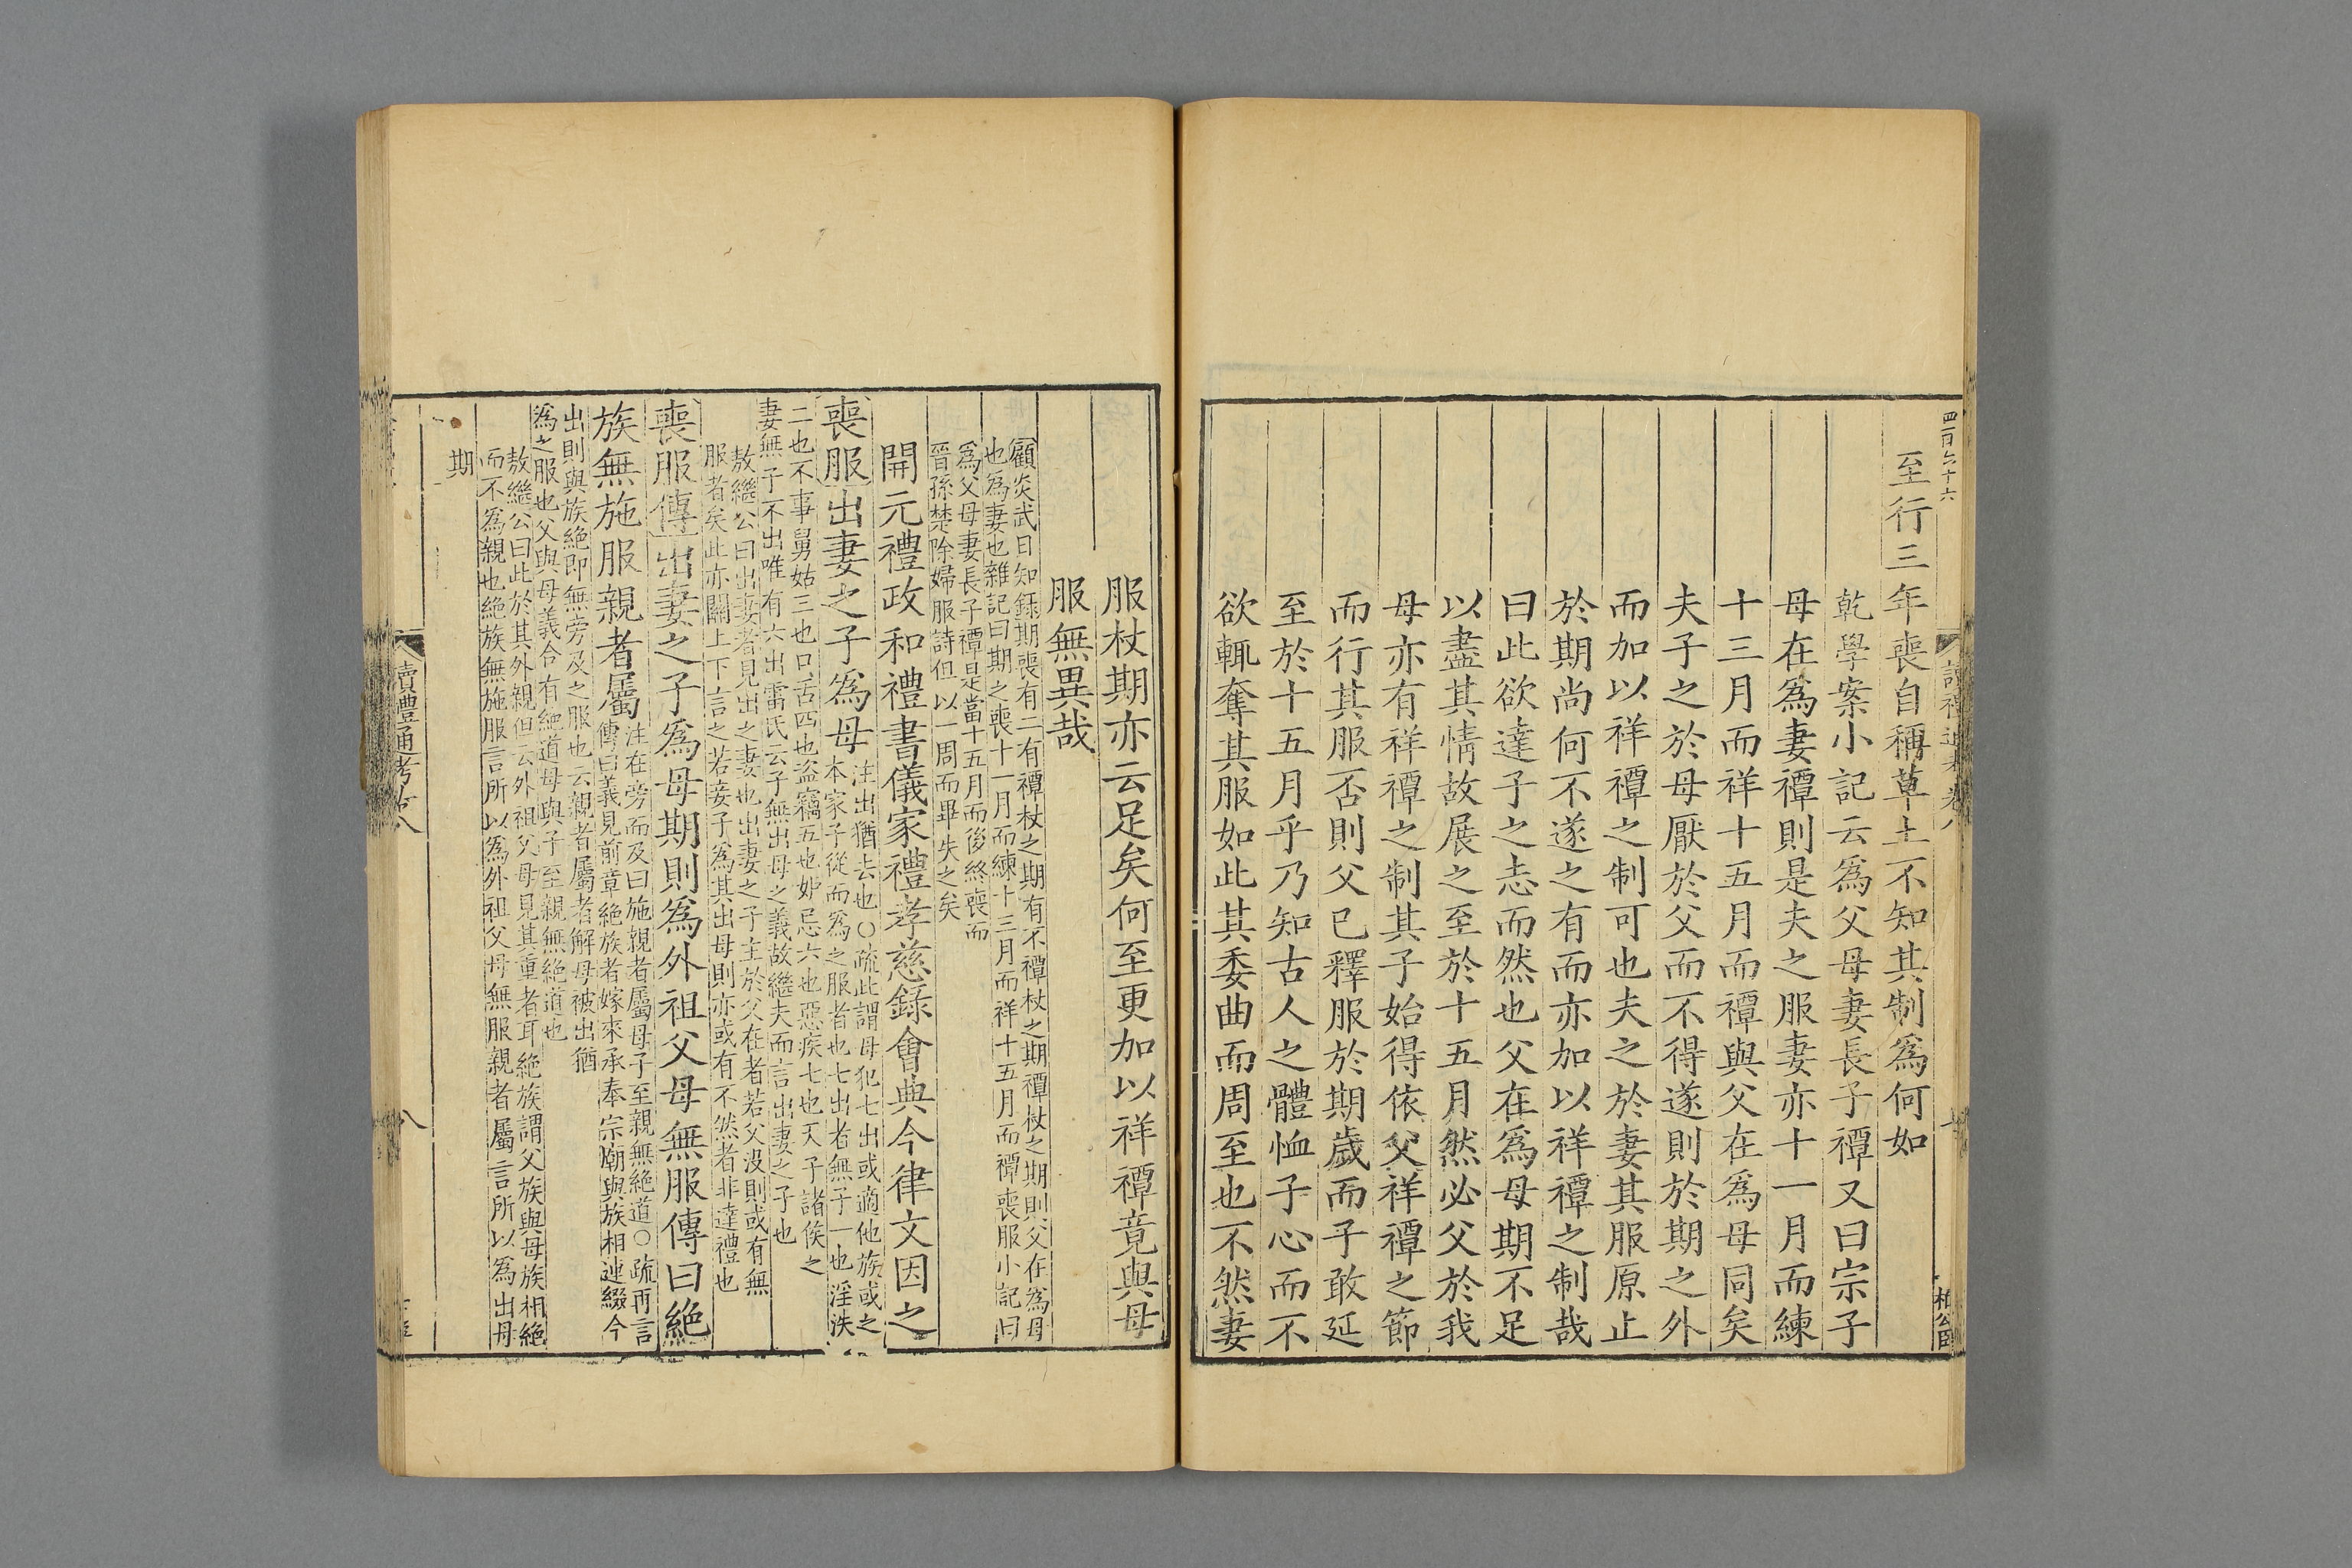 四百六十六
至行三年喪自稱草土不知其制爲何如
乾學案小記云爲父母妻長子禫又曰宗子
母在爲妻禫則是夫之服妻亦十一月而練
十三月而祥十五月而禫與父在爲母同矣
夫子之於母厭於父而不得遂則於期之外
而加以祥禫之制可也夫之於妻其服原止
於期尚何不遂之有而亦加以祥禫之制哉
曰此欲達子之志而然也父在爲母期不足
以盡其情故展之至於十五月然必父於我
母亦有祥禫之制其子始得依父祥禫之節
而行其服否則父已釋服於期歲而子敢延
至於十五月乎乃知古人之體恤子心而不
欲輒奪其服如此其委曲而周至也不然妻
服杖期亦云足矣何至更加以祥禫竟與母
服無異哉
顧炎武日知錄期喪有二有禫杖之期有不禫杖之期禫杖之期則父在為母
也為妻也雜記曰期之喪十一月而練十三月而祥十五月而禫喪服小記曰
爲父母妻長子禫是當十五月而後終喪而
晉孫楚除婦服詩但以一周而畢失之矣
開元禮政和禮書儀家禮孝慈錄會典今律文因之
喪服出妻之子爲母
注出猶去也○疏此謂母犯七出或適他族或之
本家子從而爲之服者也七出者無子一也淫泆
二也不事舅姑三也口舌四也盜竊五也妒忌六也惡疾七也天子諸侯之
妻無子不出唯有六出雷氏云子無出母之義故繼夫而言出妻之子也
敖繼公曰出妻者見出之妻也出妻之子主於父在者若父沒則或有無
服者矣此亦關上下言之若妾子爲其出母則亦或有不然者非達禮也
喪服傳出妻之子爲母期則爲外祖父母無服傳曰絶
族無施服親者屬
注在旁而及曰施親者屬母子至親無絶道○疏再言
傳曰義見前章絶族者嫁來承奉宗廟與族相連綴今
出則與族絶即無旁及之服也云親者屬者解母被出猶
爲之服也父與母義合有絶道母與子至親無絶道也
敖繼公曰此於其外親但云外祖父母見其重者耳絶族謂父族與母族相絶
而不爲親也絶族無施服言所以爲外祖父母無服親者屬言所以爲出母
期
讀禮通考卷八
八